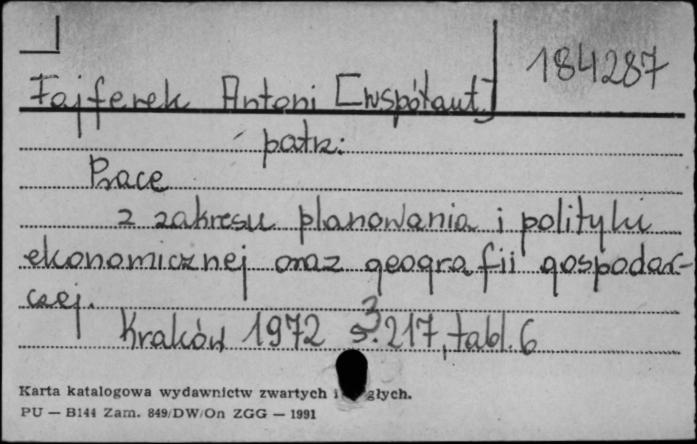 184287
Fajferek Antoni [współaut.]
patrz:
Prace
z zakresu planowania i polityki
ekonomicznej oraz geografii gospodar-
czej.
Kraków 1972 s. 217, tabl. 6
3
Karta katalogowa wydawnictw zwartych i głych.
PU — B144 Zam. 849/DW/On ZGG — 1991